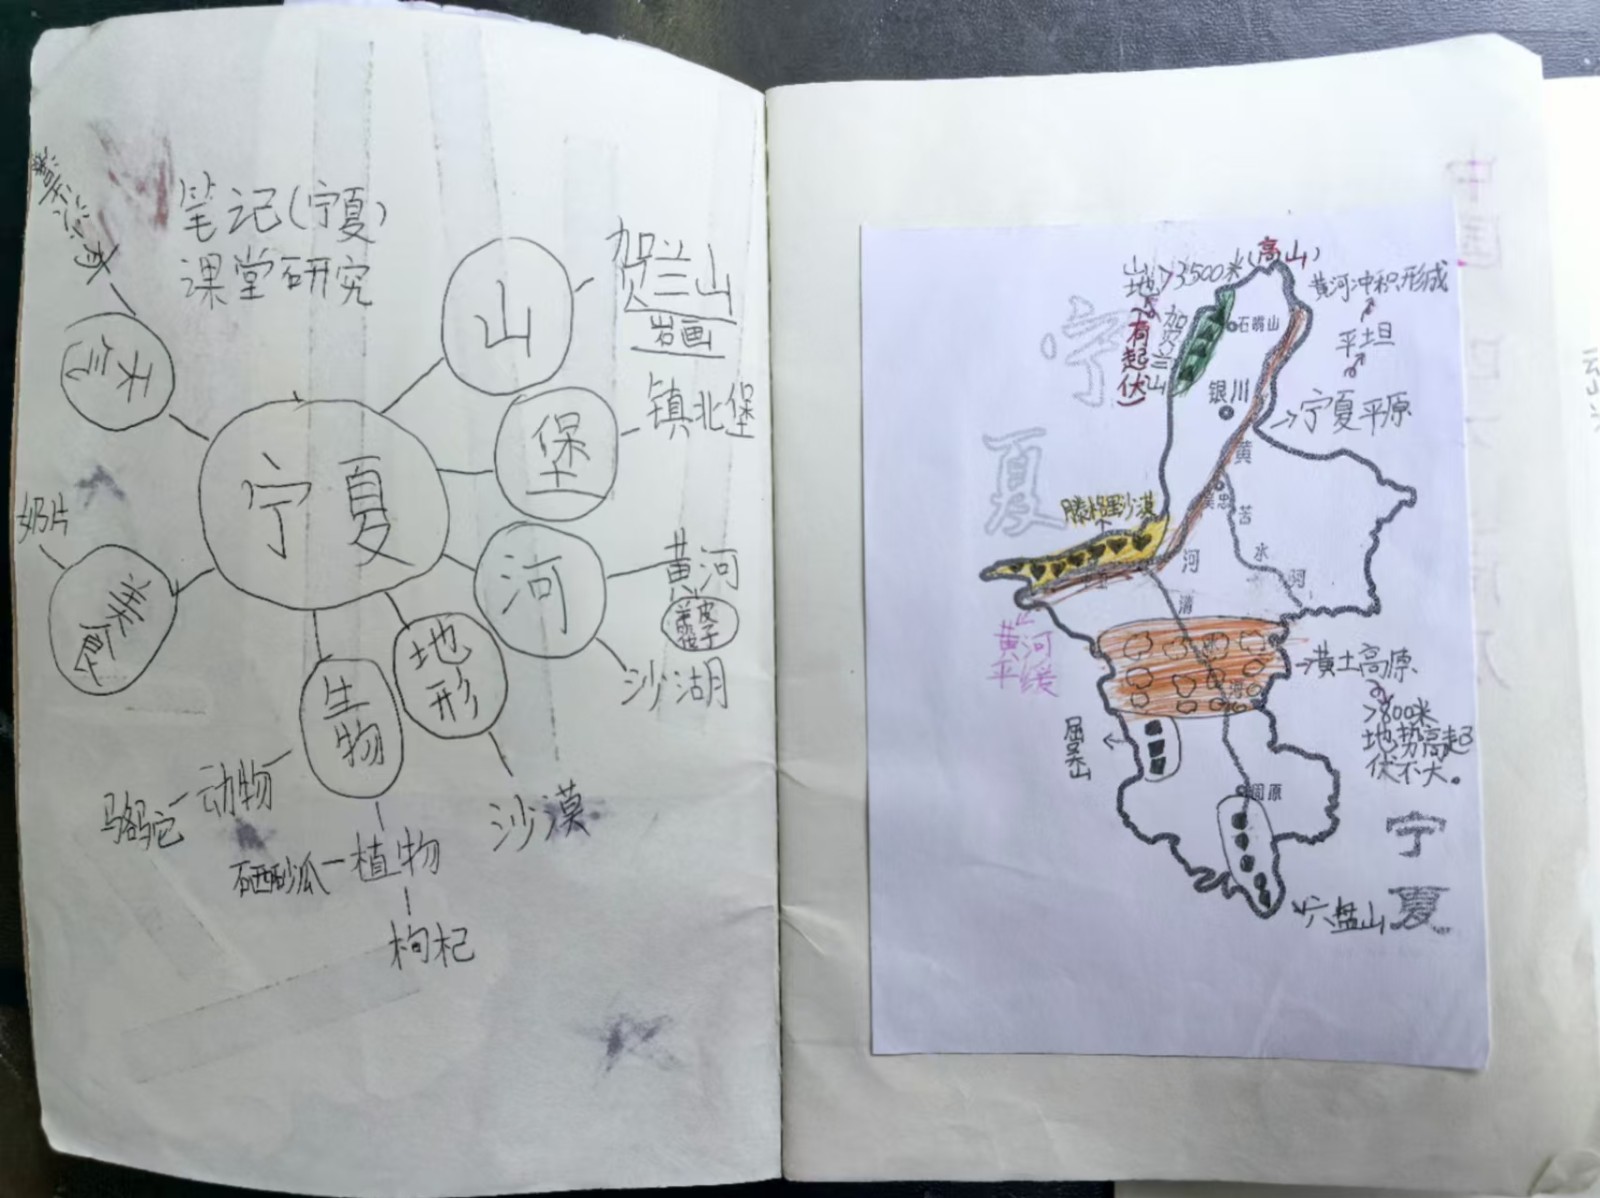 笔记(宁夏)
课堂研究
宁夏
山
贺兰山
岩画
堡
镇北堡
河
黄河
沙湖
地形
沙漠
生物
动物
骆驼
植物
硒砂瓜
枸杞
美食
奶片
天气
宁
夏
山地>3500米(高山)
(有起伏)
贺兰山
石嘴山
银川
黄河冲积形成
平坦
宁夏平原
黄
河
吴忠
苦
水
河
清
腾格里沙漠
黄河
平缓
海
黄土高原
>800米
地势高起
伏不大。
屈吴山
固原
六盘山
宁
夏